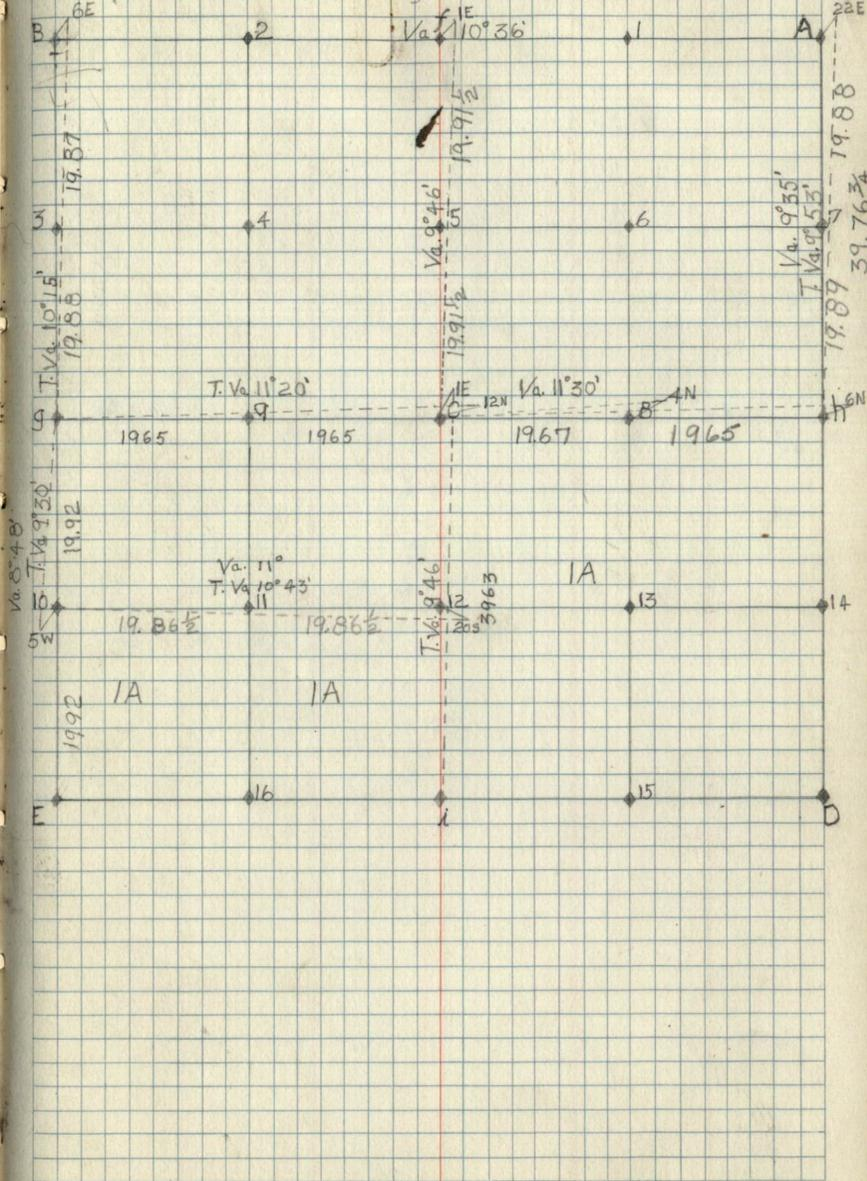 6E 1E 22E
B 2 Va. f 10°36' 1 A
19.87 19.91½ 19.88
39.76¾
3 4 Va. 9°46' 5 6 Va. 9°35' T. Va. 9°53' 7
T. Va. 10°15' 19.88 19.91½ 19.89
T. Va 11°20' 1E Va. 11°30' 4N 6N
g 9 C 12N 8 h
1965 1965 19.67 1965
Va. 8°48' T. Va 9°30' 19.92
Va. 11°
T. Va 10°43' T. Va. 9°46' 3963 1A
10 11 12 13 14
5W 19.86½ 19.86½
1A 1A
1992
E 16 i 15 D